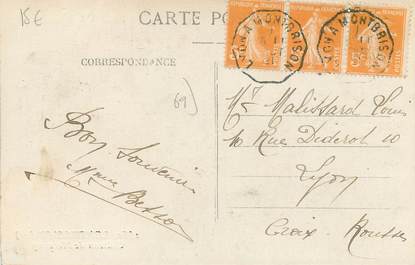 15€
CARTE PO
LYON A MONTBRISON
LYON A MONTBRISON
CORRESPONDANCE
69)
Bon Souvenir
Mme Besson
Mr Malissard Louis
10 Rue Diderot 10
Lyon
Croix-Rousse